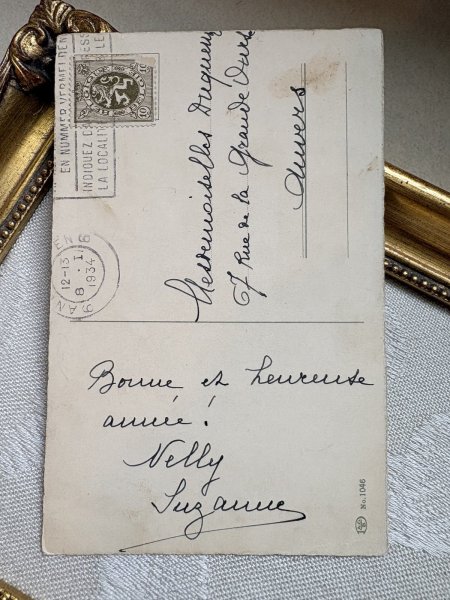 EN NUMMER VERMELDEN
INDIQUEZ
LA LOCALITE
12-13
8 · I
1934
10
10
Mesdemoiselles
67 Rue de la Grande Ourse
Anvers
Bonne et heureuse
année!
Nelly
Suzanne
No. 1046